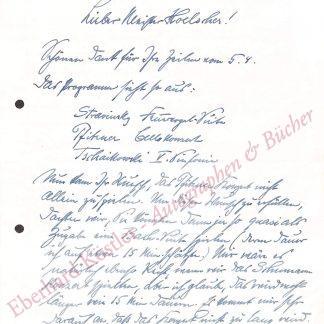 Lieber Meister Hoelscher!
Schönen Dank für Ihre Zeilen vom 5.4.
Das Programm sieht so aus:
Strawinsky Feuervogel-Suite
Pfitzner Cellokonzert
Tschaikowski V. Sinfonie
Nun kam Ihr Wunsch, das Pfitzner nicht
allein zu spielen. Um den Wunsch zu erfüllen,
dachten wir, Sie könnten dann so quasi als
Zugabe eine Bach Suite spielen (deren Dauer
ich auf etwa 15 Min schätze). Nur wäre es
das Schumann
Konzert spielen, aber ich glaube, das wird noch
länger wie 15 Min dauern. Es kommt mir sehr
darauf an, daß das Konzert nicht zu lang wird.
Eberhard Köstler - Autographen & Bücher